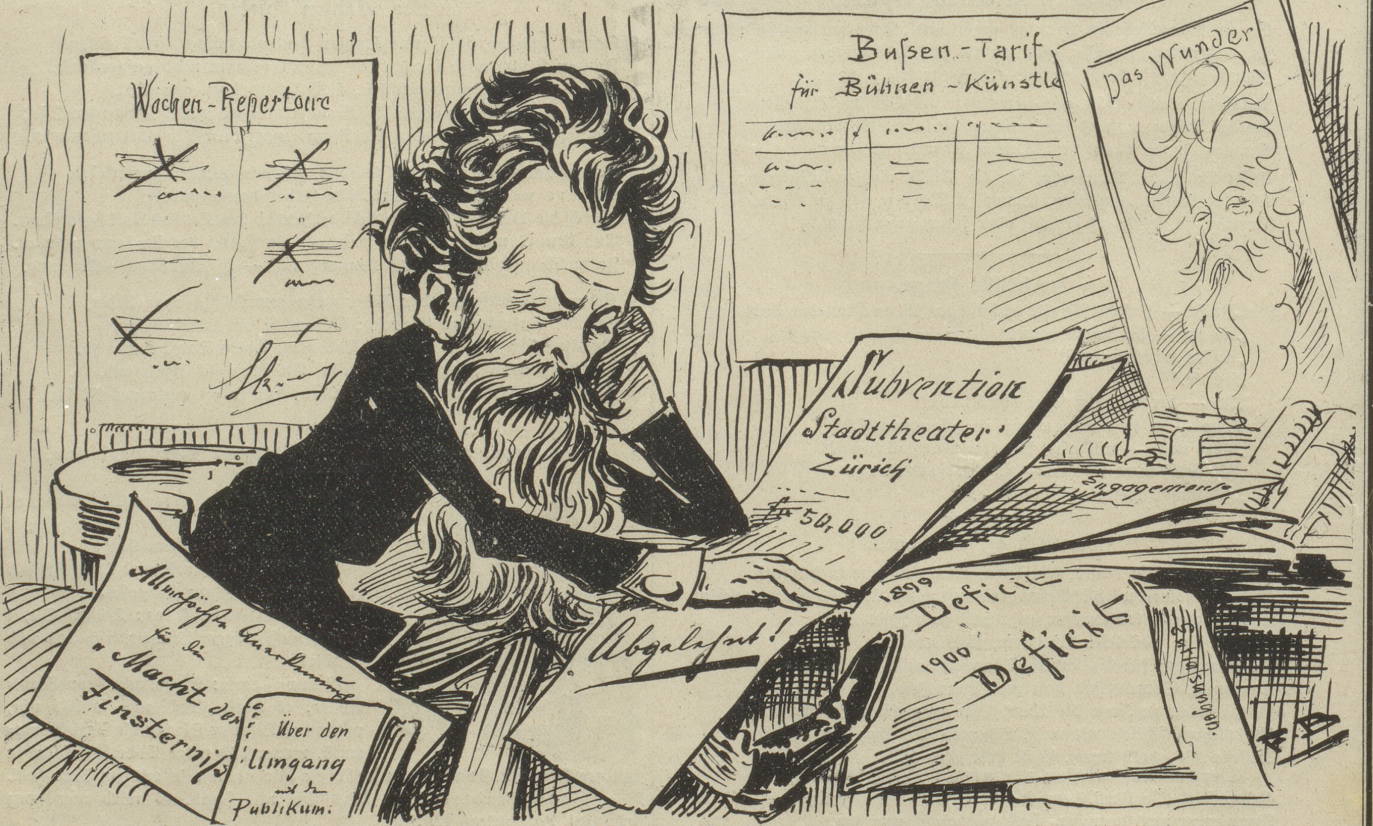 Wochen-Repertoire
Bußen-Tarif
für Bühnen-Künstle
Das Wunder
Subvention
Stadttheater
Zürich
fr 50,000
Engagements
1899
Deficit
1900
Deficit
Entlassungen.
Abgelehnt!
Allerhöchste Anerkennung
für die
"Macht der
Finsterniß
Über den
Umgang
mit dem
Publikum.